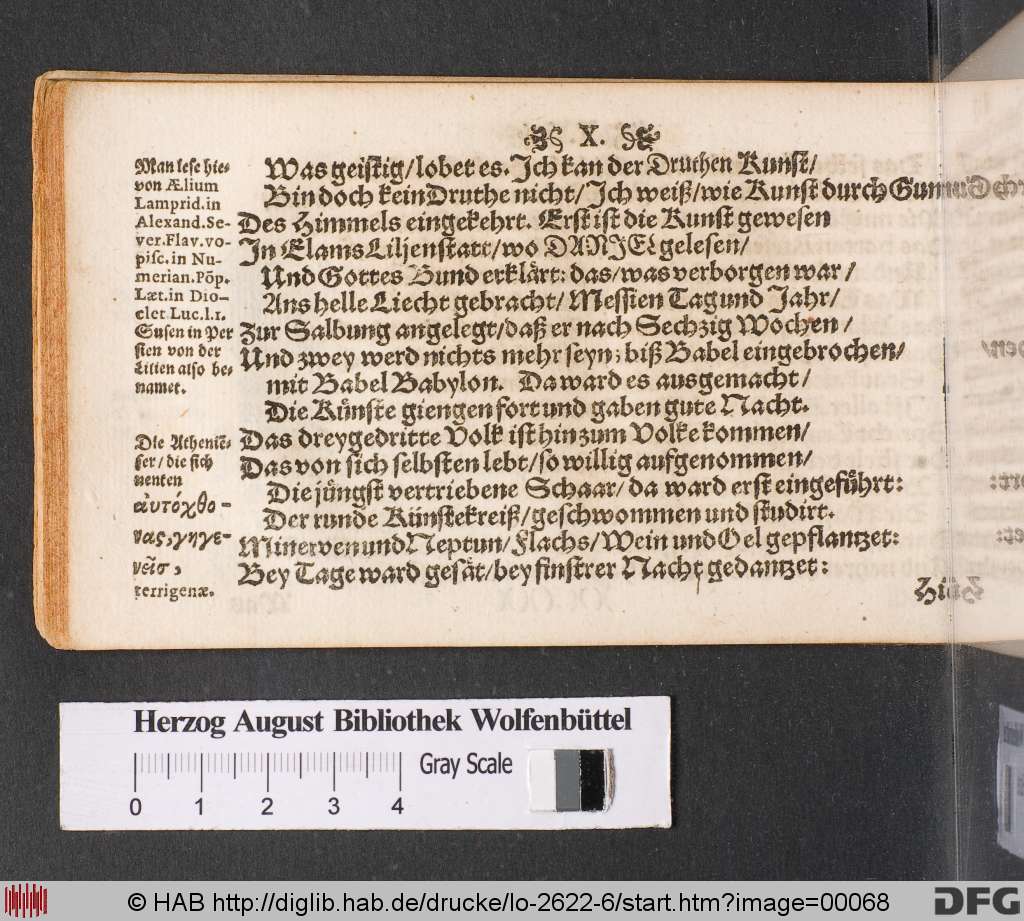 X.
Man lese hie-
von Ælium
Lamprid. in
Alexand. Se-
ver. Flav. vo-
pisc. in Nu-
merian. Pōp.
Læt. in Dio-
clet Luc. l. 1.
Susen in Per
sien von der
Lilien also be-
namet.
Die Athenię-
ser / die sich
nenten
αὐτόχθο-
νας, γηγε-
νεῖσ,
terrigenæ.
Was geistig / lobet es. Ich kan der Druthen Kunst /
Bin doch kein Druthe nicht / Ich weiß / wie Kunst durch
Des Himmels eingekehrt. Erst ist die Kunst gewesen
In Elams Liljenstatt / wo DANIEL gelesen /
Und Gottes Bund erklärt: das / was verborgen war /
Ans helle Liecht gebracht / Messien Tag und Jahr /
Zur Salbung angelegt / daß er nach Sechzig Wochen /
Und zwey werd nichts mehr seyn; biß Babel eingebrochen /
mit Babel Babylon. Da ward es ausgemacht /
Die Künste giengen fort und gaben gute Nacht.
Das dreygedritte Volk ist hin zum Volke kommen /
Das von sich selbsten lebt / so willig aufgenommen /
Die jüngst vertriebene Schaar / da ward erst eingeführt:
Der runde Künstekreiß / geschwommen und studirt.
Minerven und Neptun / Flachs / Wein und Oel gepflantzet:
Bey Tage ward gesät / bey finstrer Nacht gedantzet:
Herzog August Bibliothek Wolfenbüttel
Gray Scale
0 1 2 3 4
© HAB http://diglib.hab.de/drucke/lo-2622-6/start.htm?image=00068
DFG